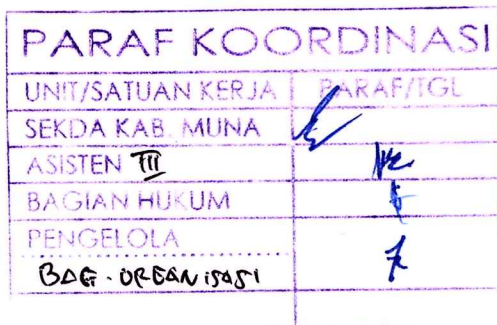 PARAF KOORDINASI
UNIT/SATUAN KERJA PARAF/TGL
SEKDA KAB. MUNA
ASISTEN III
BAGIAN HUKUM
PENGELOLA
BAG. ORGANISASI